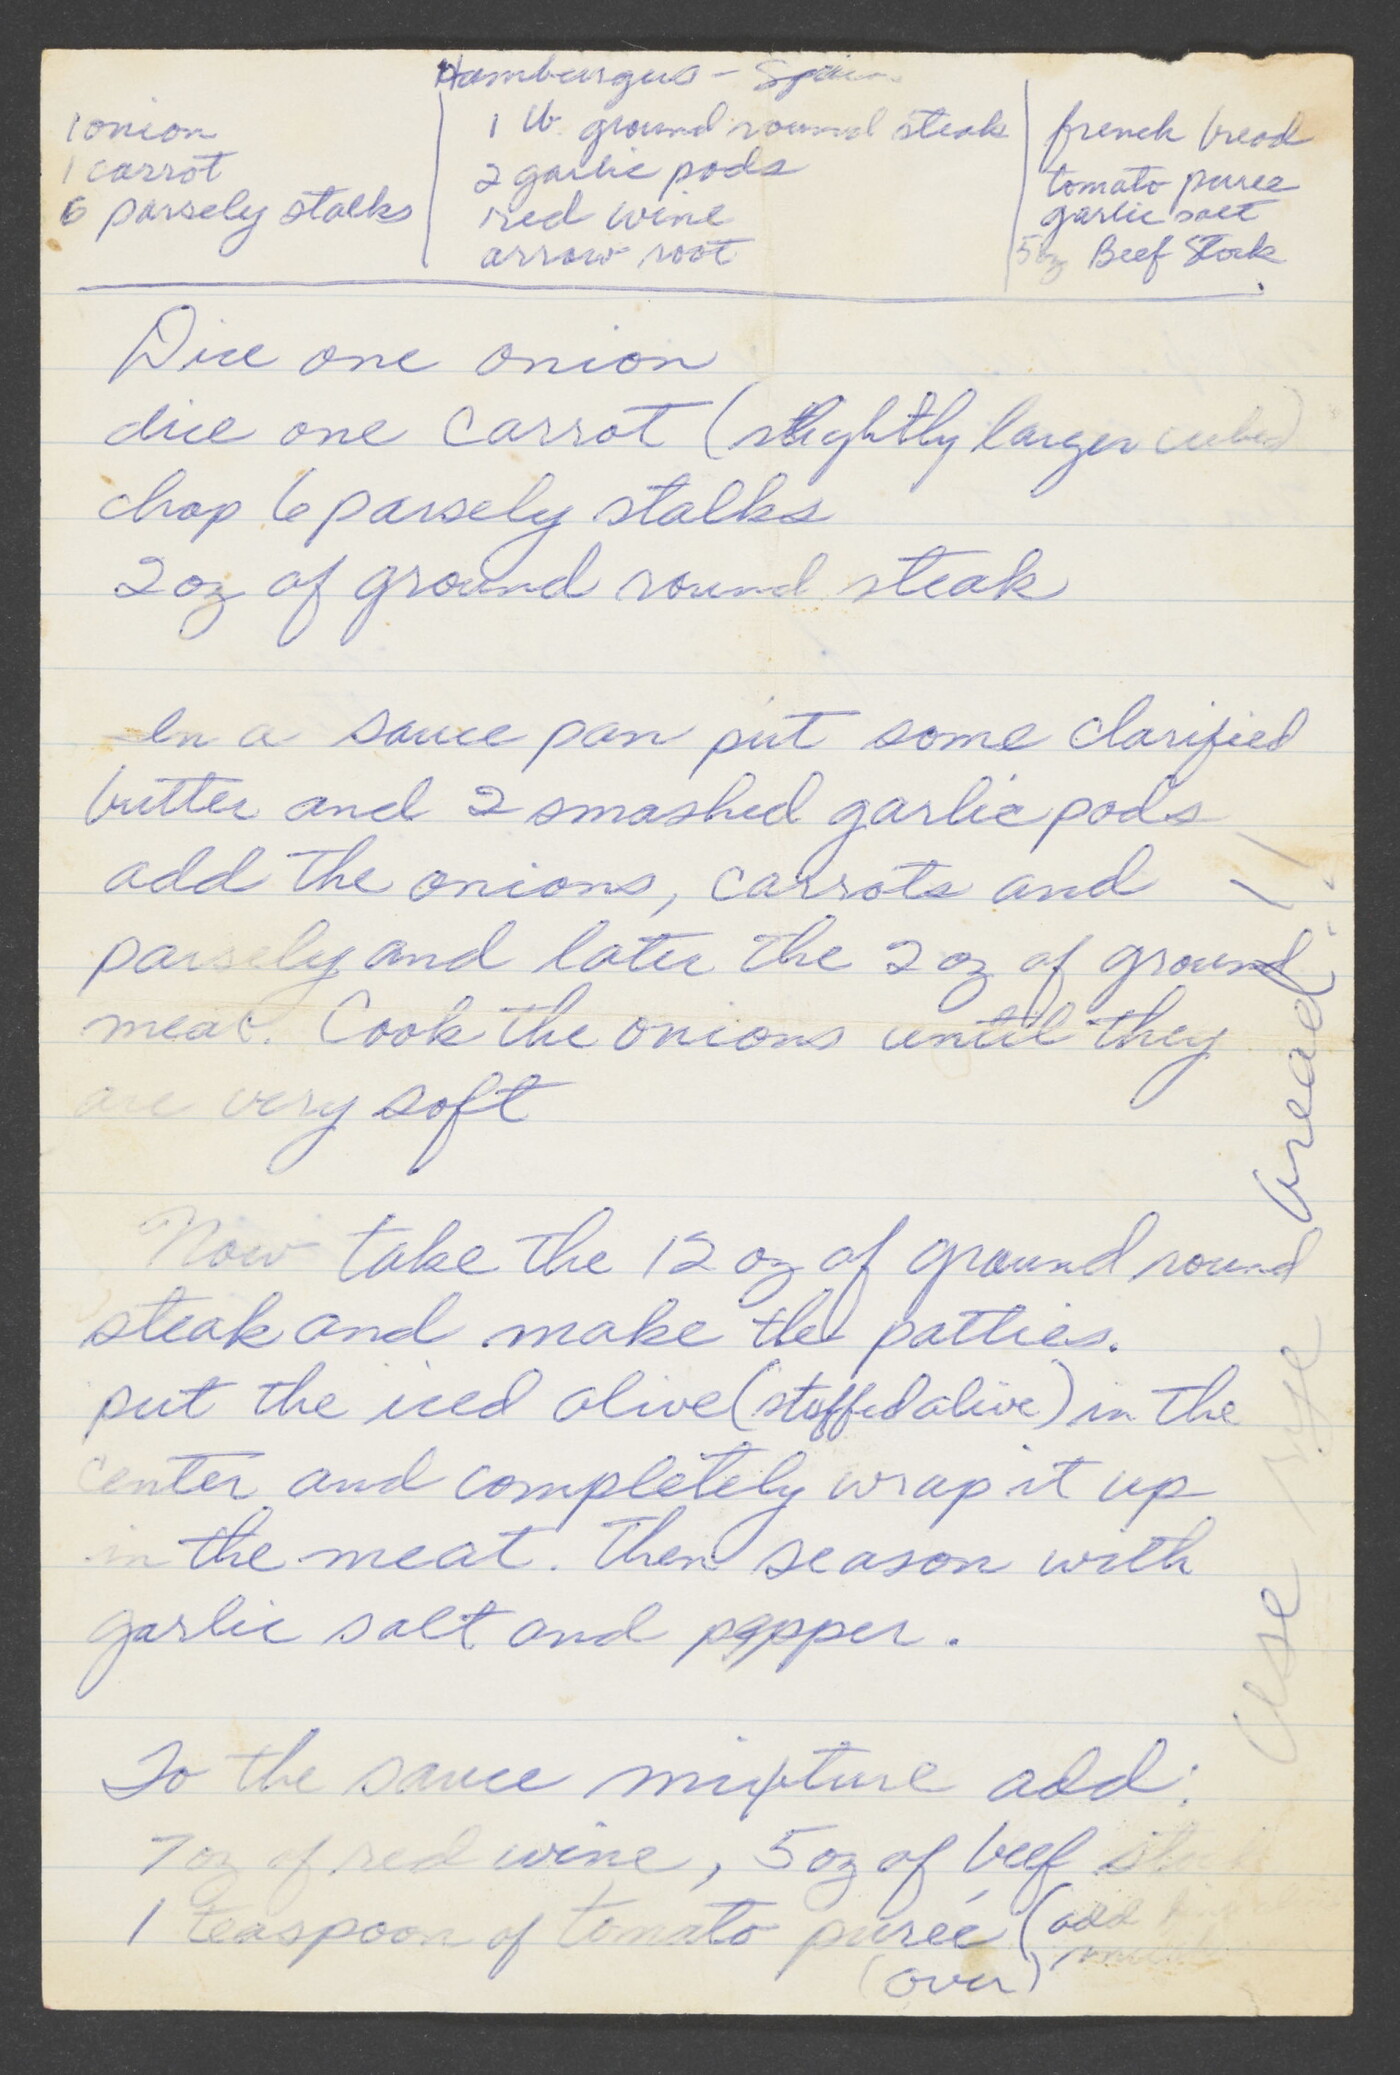 Hamburgus -
1 onion
1 carrot
6 parsely stalks
1 lb ground round steak
2 garlic pods
red wine
arrow root
french bread
tomato puree
garlic salt
5 oz Beef Stock
Dice one onion
dice one carrot (slightly larger cubes)
chop 6 parsely stalks
2 oz of ground round steak
In a sauce pan put some clarified
butter and 2 smashed garlic pods
add the onions, carrots and
parsely and later the 2 oz of ground
meat. Cook the onions until they
are very soft
Now take the 12 oz of ground round
steak and make the patties.
put the iced olive (stuffed olive) in the
center and completely wrap it up
in the meat. Then season with
garlic salt and pepper.
To the sauce mixture add:
7 oz of red wine, 5 oz of beef stock
1 teaspoon of tomato purée (add
(over)
Use rye bread"!!